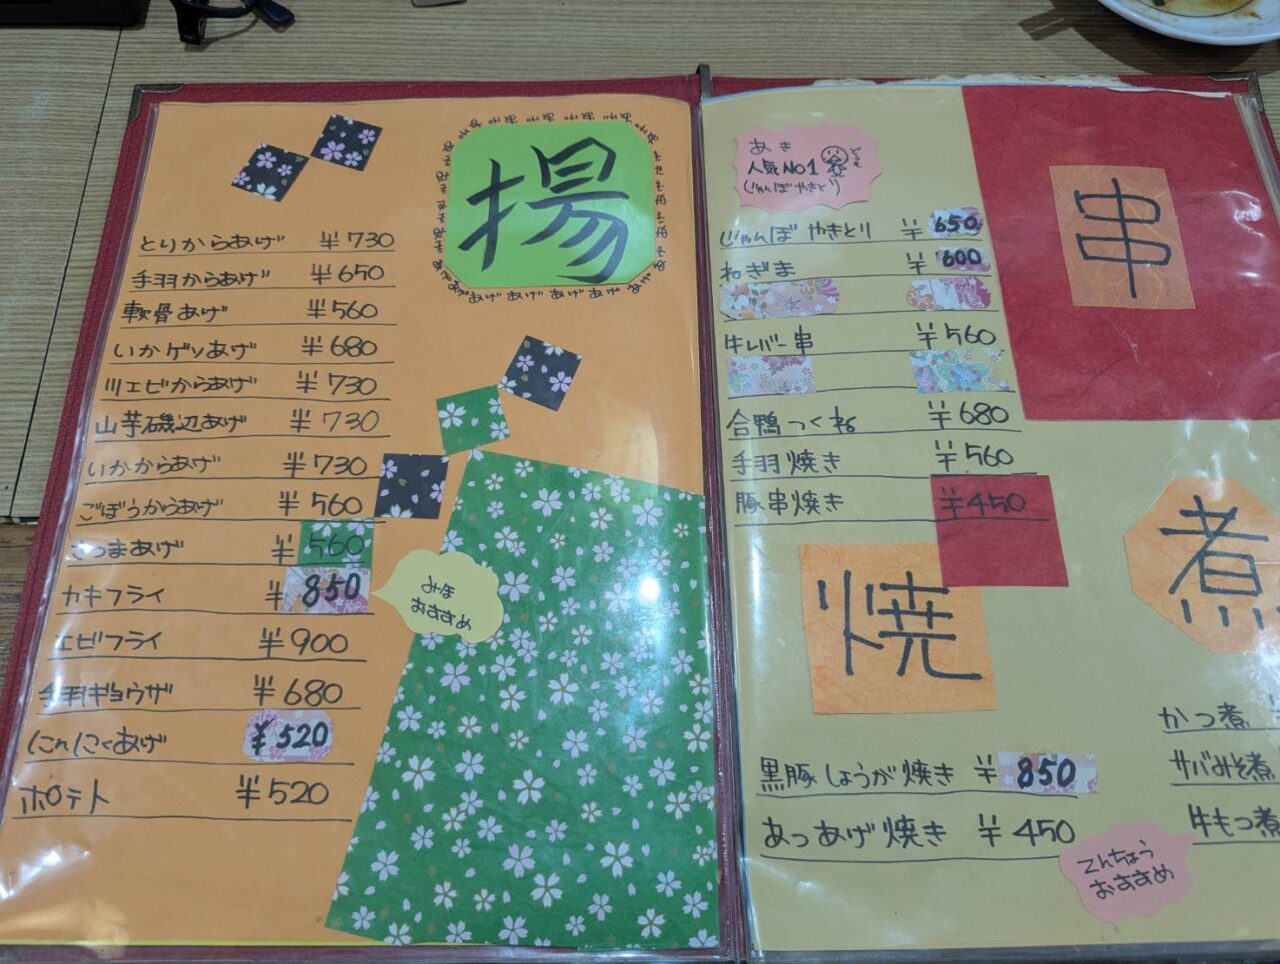 揚
とりからあげ ¥730
手羽からあげ ¥650
軟骨あげ ¥560
いかゲソあげ ¥680
川エビからあげ ¥730
山芋磯辺あげ ¥730
いかからあげ ¥730
ごぼうからあげ ¥560
さつまあげ ¥560
カキフライ ¥850
エビフライ ¥900
手羽ギョウザ ¥680
にんにくあげ ¥520
ポテト ¥520
おすすめ
串
あき
人気NO1
じゃんぼやきとり
じゃんぼやきとり ¥650
ねぎま ¥600
牛レバー串 ¥560
合鴨つくね ¥680
手羽焼き ¥560
豚串焼き ¥450
焼
黒豚しょうが焼き ¥850
あつあげ焼き ¥450
てんちょう
おすすめ
煮
かつ煮
サバみそ煮
牛もつ煮